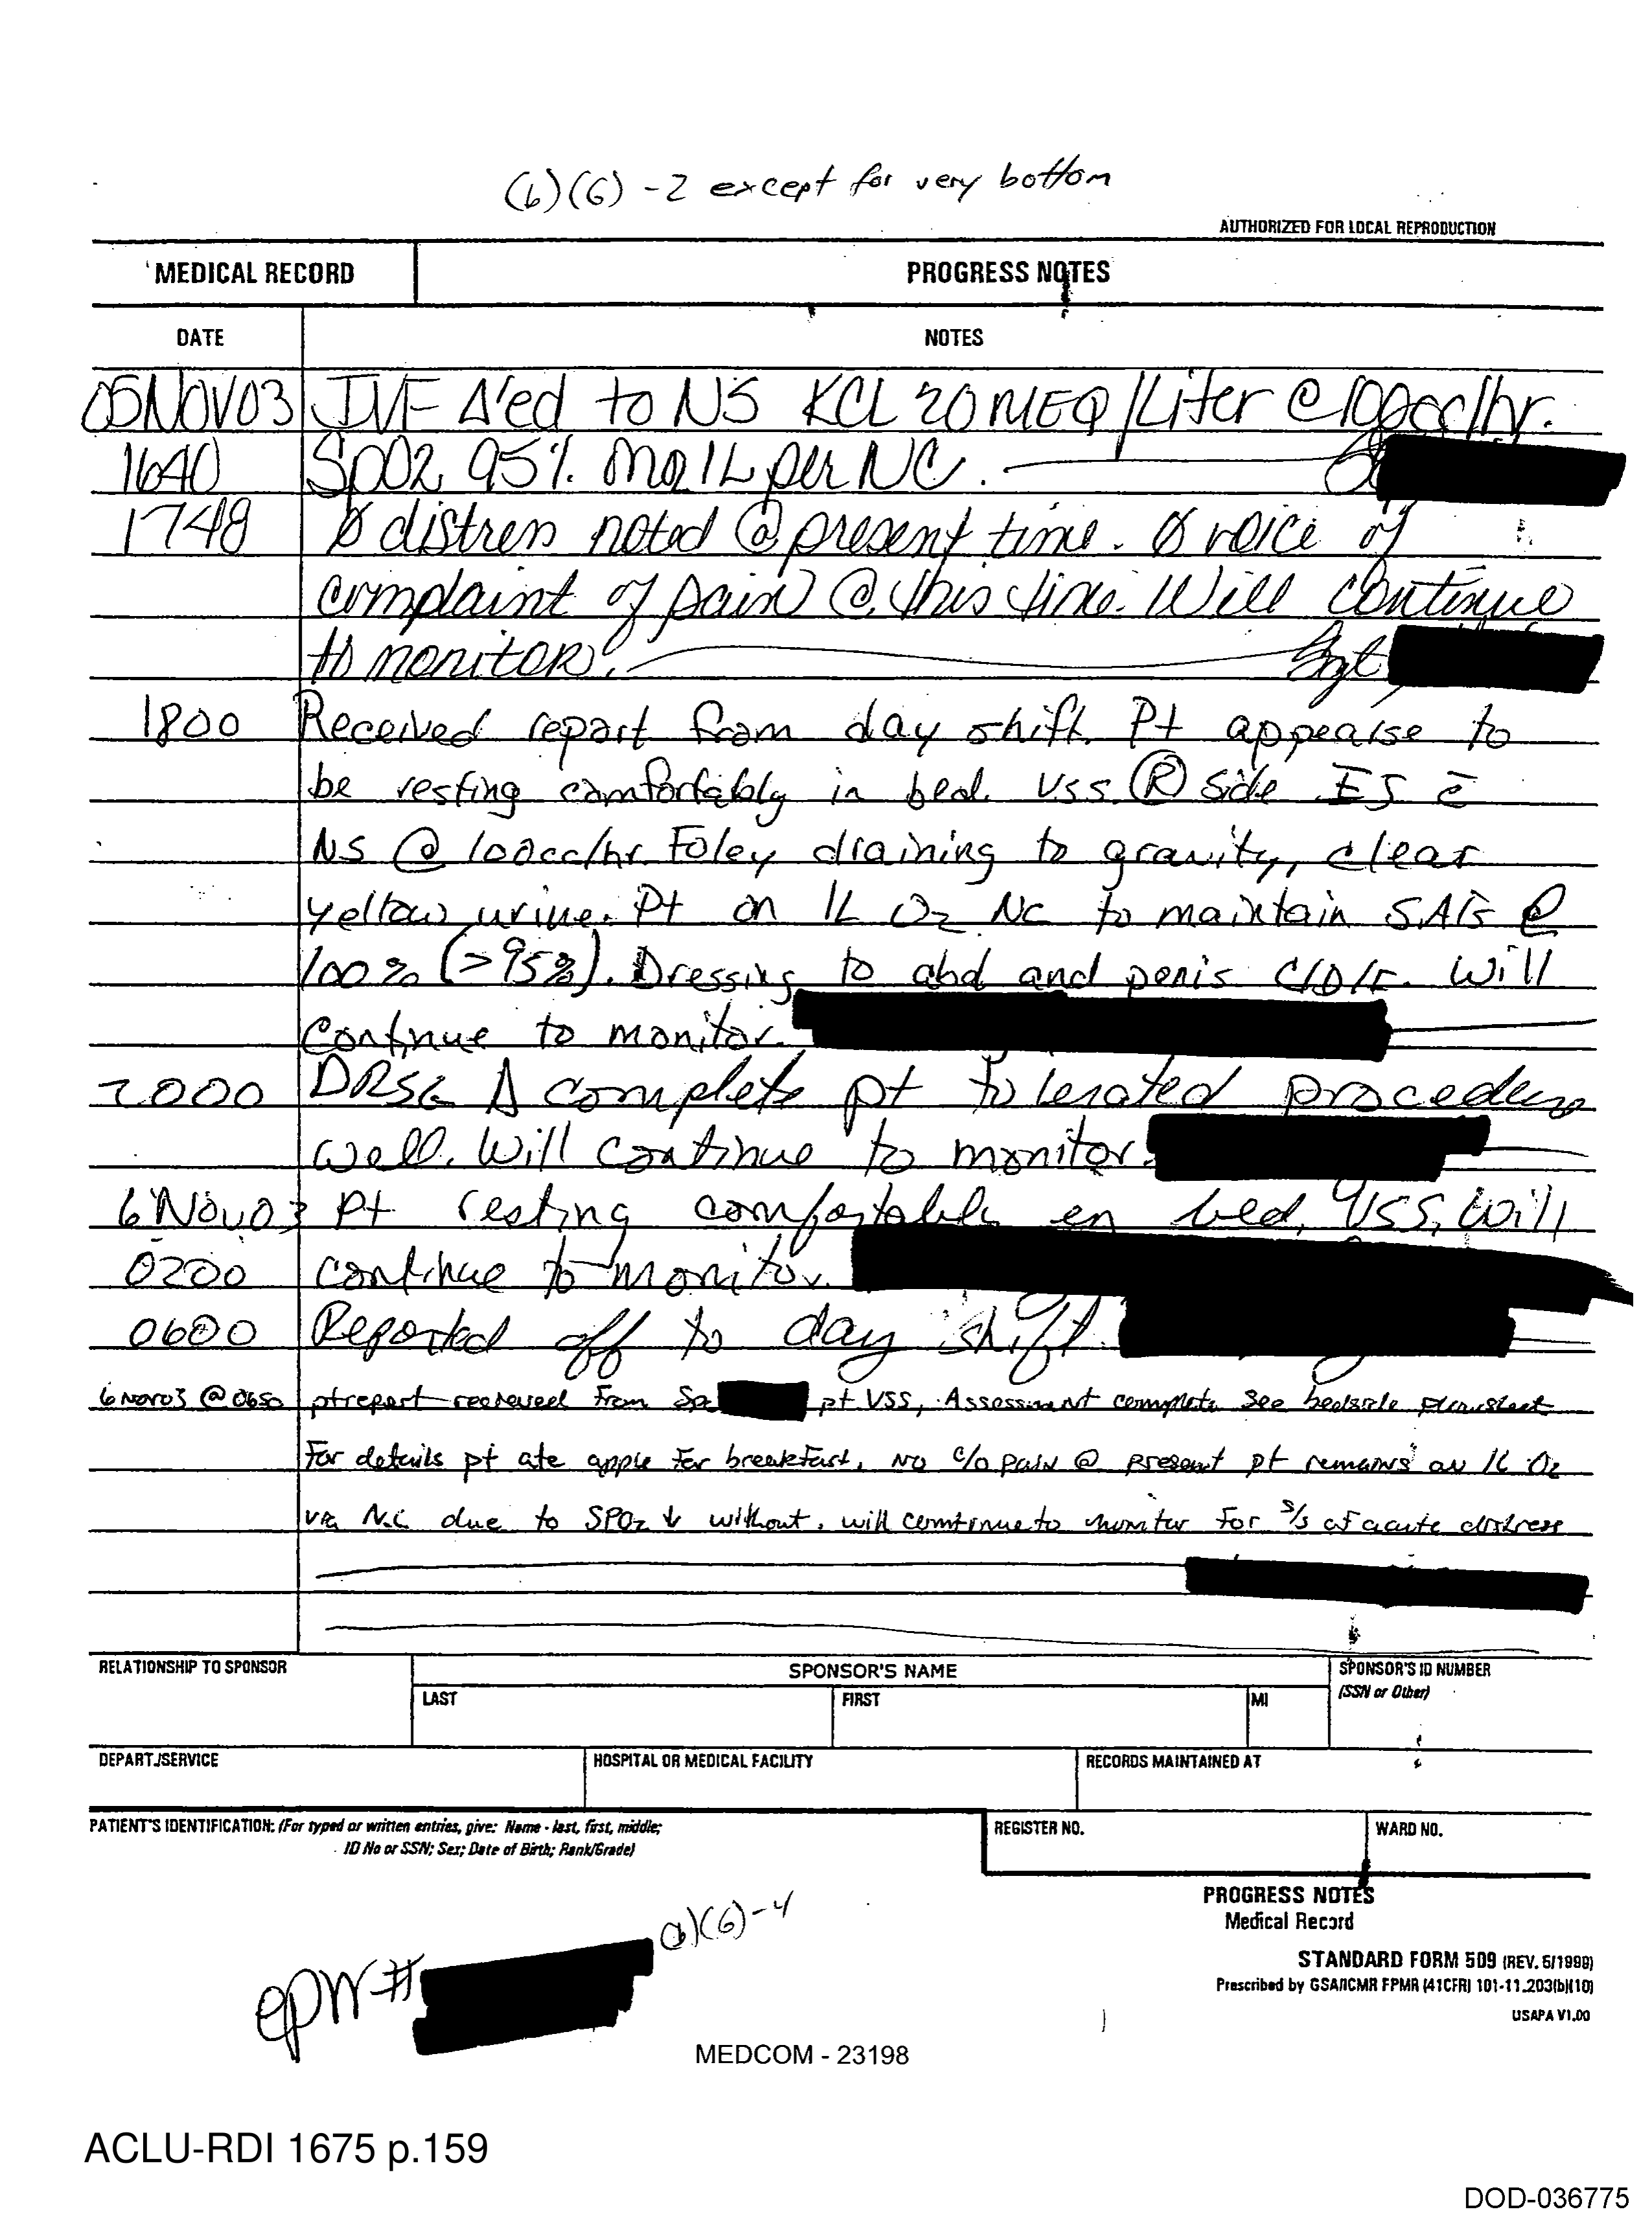 (b)(6) -2 except for very bottom
AUTHORIZED FOR LOCAL REPRODUCTION
MEDICAL RECORD PROGRESS NOTES
DATE NOTES
05NOV03 IVF Δ'ed to NS KCL 20 MEQ/Liter @ 100cc/hr.
1640 SpO2 95% on 1L per NC.
1748 Ø distress noted @ present time. Ø voice of
complaint of pain @ this time. Will continue
to monitor. Sgt
1800 Received report from day shift. Pt appearse to
be resting comfortably in bed. VSS. Ⓡ side EJ c̄
NS @ 100cc/hr. Foley draining to gravity, clear
yellow urine. Pt on 1L O2 NC to maintain SATS @
100% (>95%). Dressing to abd and penis C/D/I. Will
continue to monitor.
2000 DRSG Δ complete pt tolerated procedure
well. Will continue to monitor.
6Nov03 Pt resting comfortably en bed, VSS, Will
0200 continue to monitor.
0600 Reported off to day shift
6Nov03 @ 0650 pt report receieved From Sp pt VSS, Assessment complete See bedside flowsheet
For details pt ate apple For breakfast. No c/o pain @ present pt remains on 1L O2
via N.C due to SPO2 ↓ without. will continue to monitor For s/s of acute distress
RELATIONSHIP TO SPONSOR SPONSOR'S NAME SPONSOR'S ID NUMBER
LAST FIRST MI (SSN or Other)
DEPART./SERVICE HOSPITAL OR MEDICAL FACILITY RECORDS MAINTAINED AT
PATIENT'S IDENTIFICATION: (For typed or written entries, give: Name - last, first, middle; REGISTER NO. WARD NO.
ID No or SSN; Sex; Date of Birth; Rank/Grade)
PROGRESS NOTES
Medical Record
(b)(6)-4
EPW #
STANDARD FORM 509 (REV. 5/1999)
Prescribed by GSA/ICMR FPMR (41CFR) 101-11.203(b)(10)
USAPA V1.00
MEDCOM - 23198
ACLU-RDI 1675 p.159
DOD-036775